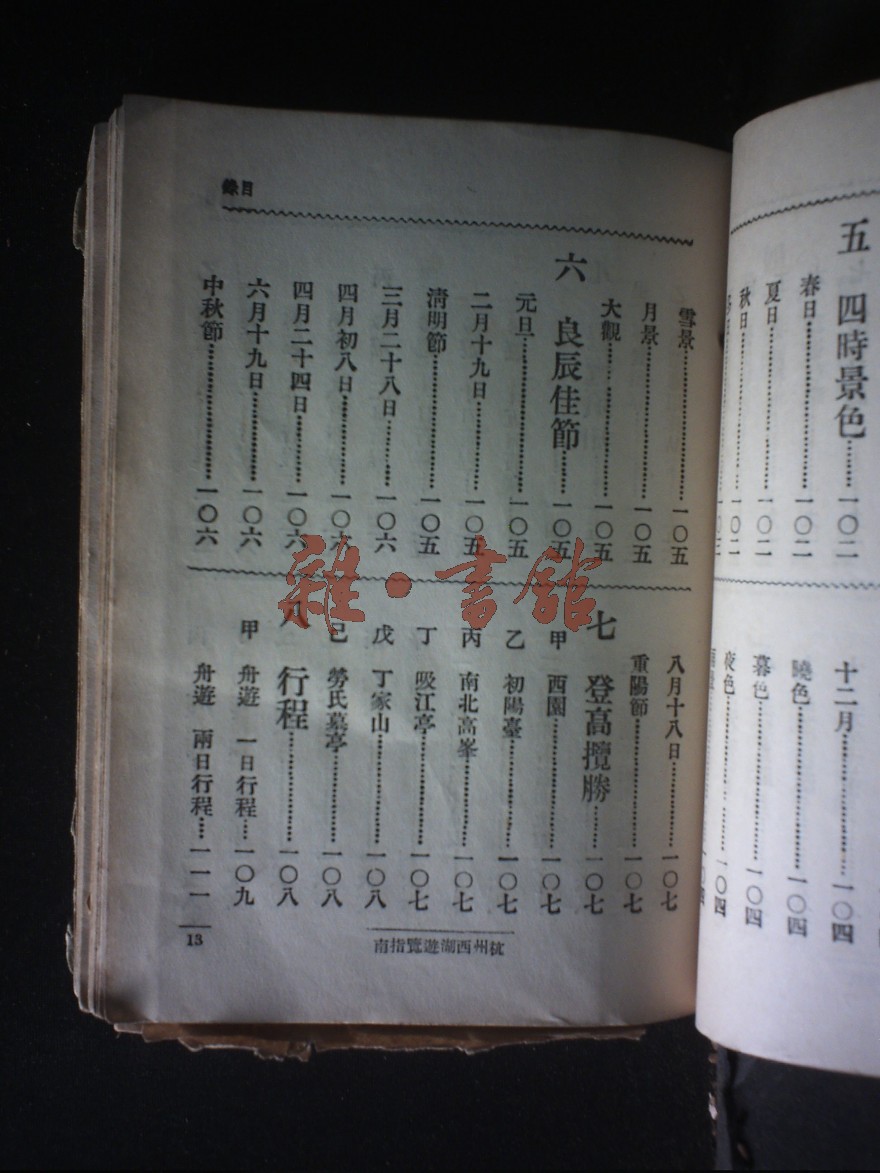 五 四時景色……一〇二
春日……一〇二
夏日……一〇二
秋日……一〇二
十二月……一〇四
曉色……一〇四
暮色……一〇四
夜色……一〇四
目錄
雪景……一〇五
月景……一〇五
大觀……一〇五
六 良辰佳節……一〇五
元旦……一〇五
二月十九日……一〇五
清明節……一〇五
三月二十八日……一〇六
四月初八日……一〇六
四月二十四日……一〇六
六月十九日……一〇六
中秋節……一〇六
八月十八日……一〇七
重陽節……一〇七
七 登高攬勝……一〇七
甲 西園……一〇七
乙 初陽臺……一〇七
丙 南北高峯……一〇七
丁 吸江亭……一〇七
戊 丁家山……一〇八
己 勞氏墓亭……一〇八
八 行程……一〇八
甲 舟遊 一日行程……一〇九
舟遊 兩日行程……一一一
杭州西湖遊覽指南
13
雜·書館